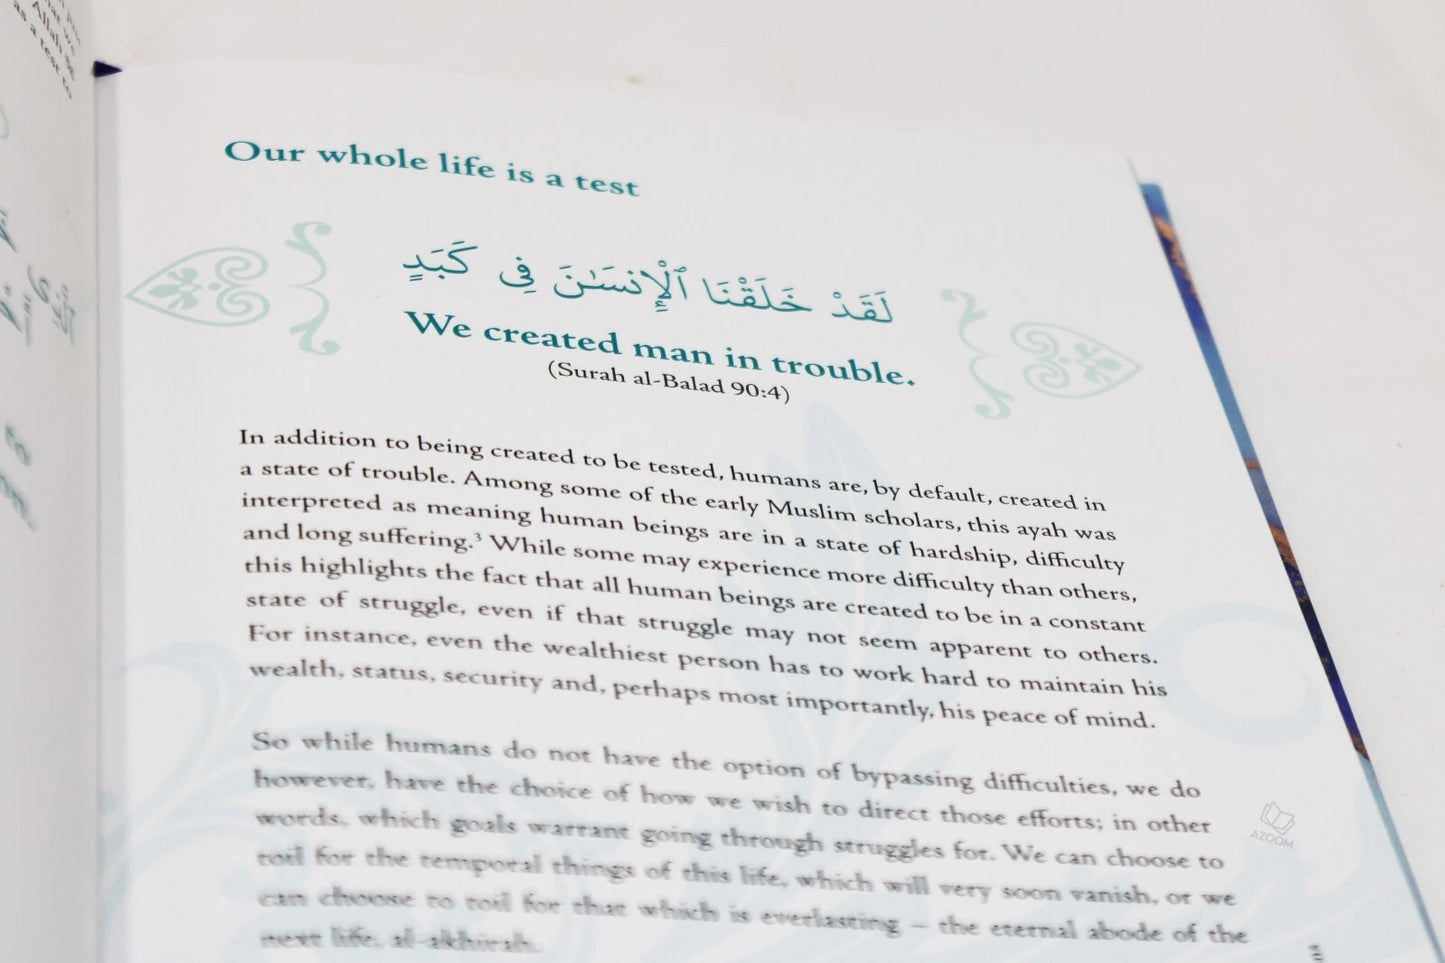 ما we
Allah ﷻ
as a test to
Our whole life is a test
لَقَدْ خَلَقْنَا ٱلْإِنسَـٰنَ فِى كَبَدٍ
We created man in trouble.
(Surah al-Balad 90:4)
In addition to being created to be tested, humans are, by default, created in
a state of trouble. Among some of the early Muslim scholars, this ayah was
interpreted as meaning human beings are in a state of hardship, difficulty
and long suffering.³ While some may experience more difficulty than others,
this highlights the fact that all human beings are created to be in a constant
state of struggle, even if that struggle may not seem apparent to others.
For instance, even the wealthiest person has to work hard to maintain his
wealth, status, security and, perhaps most importantly, his peace of mind.
So while humans do not have the option of bypassing difficulties, we do
however, have the choice of how we wish to direct those efforts; in other
words, which goals warrant going through struggles for. We can choose to
toil for the temporal things of this life, which will very soon vanish, or we
can choose to toil for that which is everlasting – the eternal abode of the
next life, al-akhirah.
AZOOM